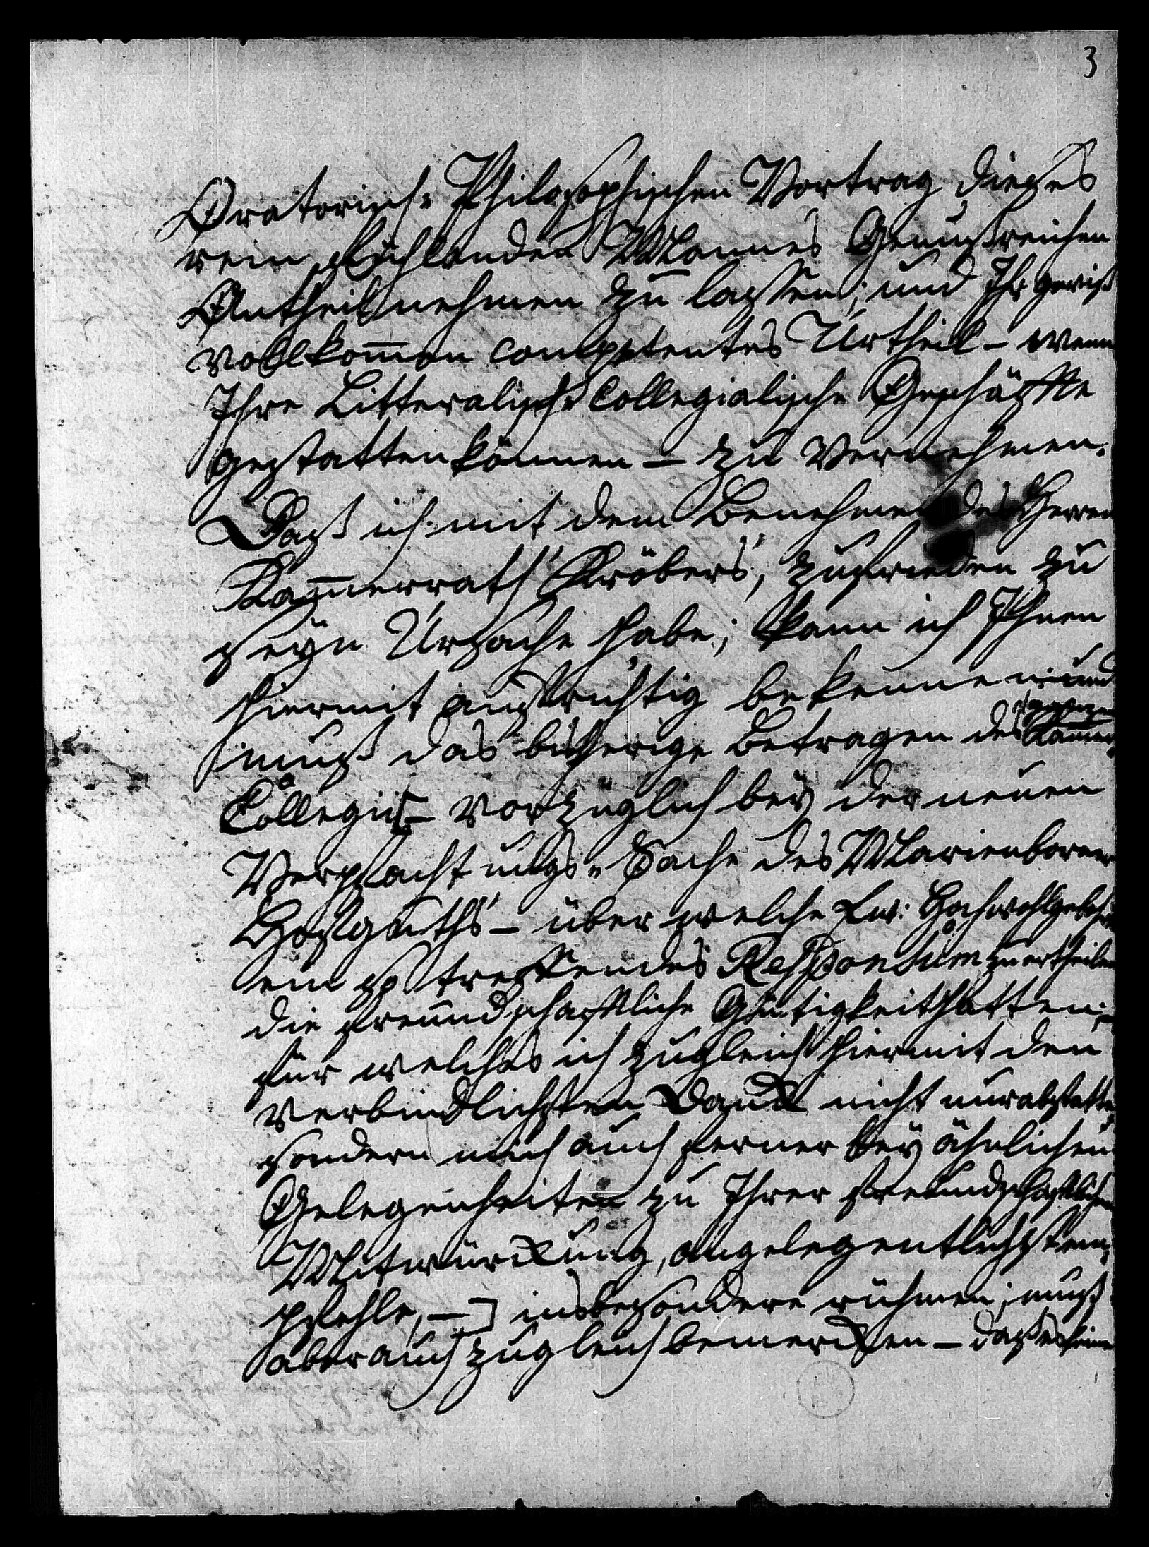 3
Oratorisch- Philosophischen Vortrag dieses
rein denkenden Mannes Genußreichen
Antheil nehmen zu lassen; und Ihr gewiß
vollkom̅en competentes Urtheil – wenn
Ihre Litteralisch- Collegialische Geschäffte
gestatten können – zu vernehmen.
Daß ich mit dem Benehmen des Herren
Kam̅errath Kröbers, zufrieden zu
seyn Ursache habe; kann ich Ihnen
hiermit aufrichtig bekennen; und
muß das bisherige Betragen des ganzen Kam̅er
Collegii – vorzüglich bey der neuen
Verpfachtungs- Sache des Marienborner
Hofguths – über welche Ew: Hochwohlgebohr
ein so treffendes Responsum zu ertheilen
die freundschafftliche Gütigkeit hatten;
für welches ich zugleich hiermit den
verbindlichsten Danck nicht nur abstatte
sondern mich auch ferner bey ähnlichen
Gelegenheiten zu Ihrer freundschafftlichen
Mitwürckung, angelegentlichst em=
pfehle, –] insbesondere rühmen; muß
aber auch zugleich bemercken – daß es seine